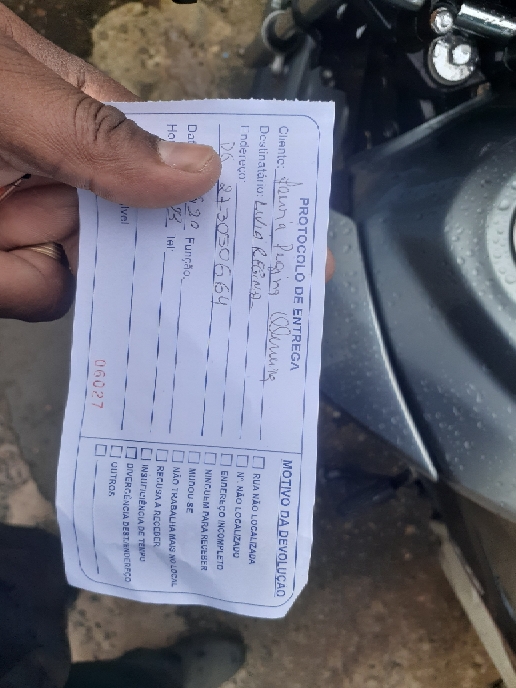 PROTOCOLO DE ENTREGA
Cliente:
Destinatário: Livia Regina
Endereço:
Dat
Função:
Ho
Tel:
ível
06027
MOTIVO DA DEVOLUÇÃO
RUA NÃO LOCALIZADA
Nº NÃO LOCALIZADO
ENDEREÇO INCOMPLETO
NINGUEM PARA RECEBER
MUDOU-SE
NÃO TRABALHA MAIS NO LOCAL
RECUSA A RECEBER
INSUFICIÊNCIA DE TEMPO
DIVERGÊNCIA DEST/ENDEREÇO
OUTROS